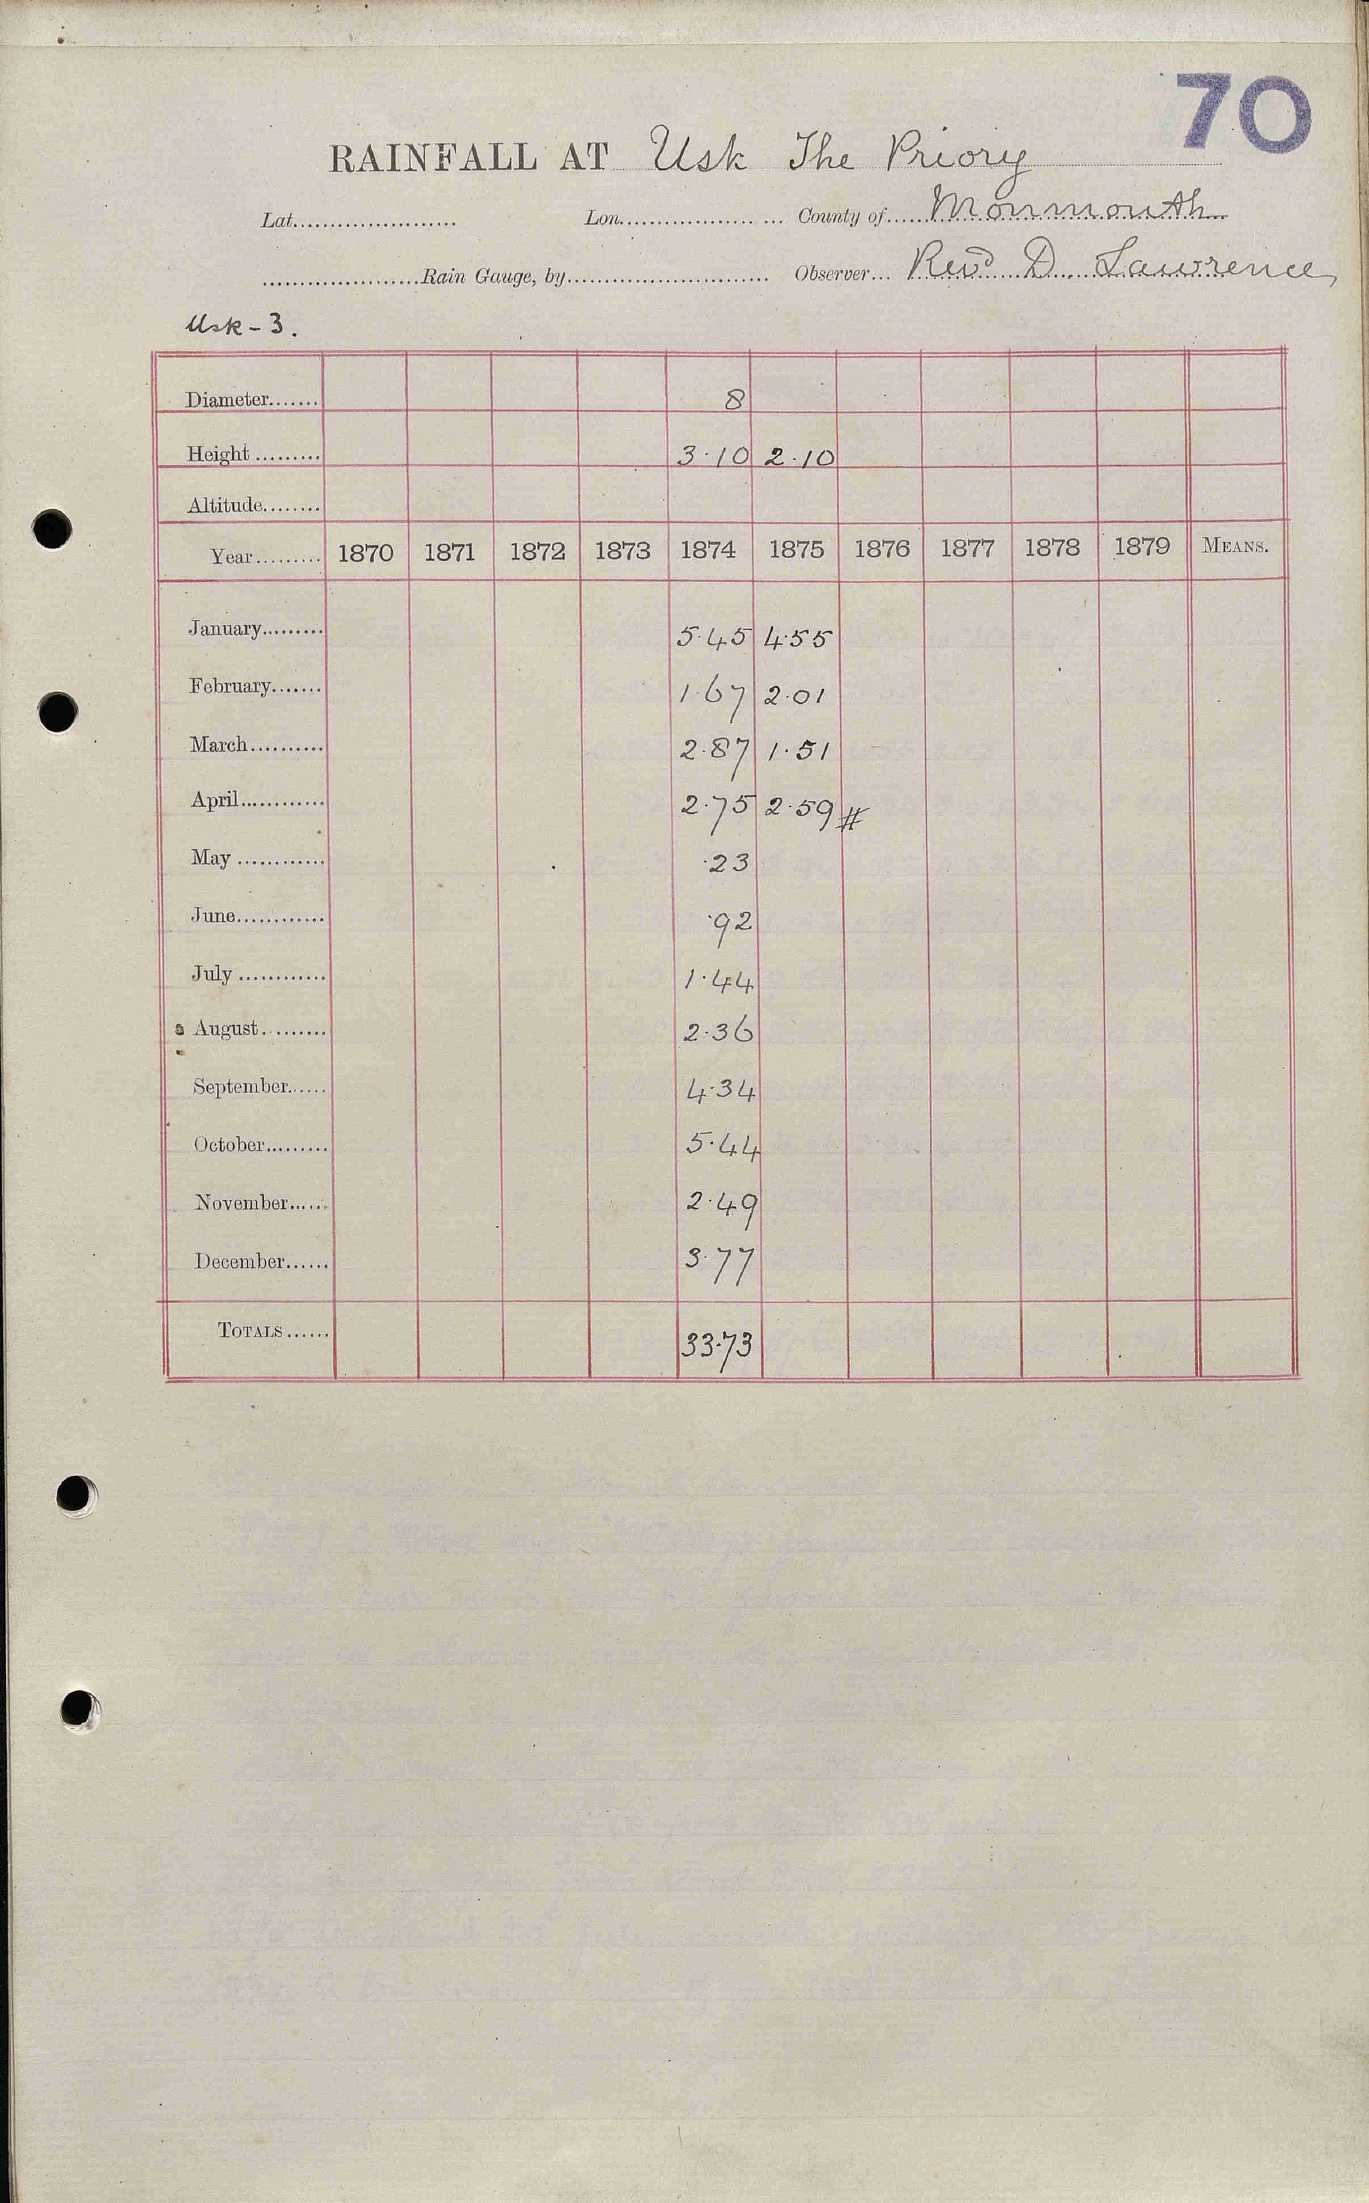 70
RAINFALL AT Usk The Priory
Lat...................... Lon...................... County of...... Monmouth
.....................Rain Gauge, by........................... Observer... Revd D. Lawrence
Usk - 3.
Diameter....... 8
Height ......... 3·10 2·10
Altitude........
Year......... 1870 1871 1872 1873 1874 1875 1876 1877 1878 1879 MEANS.
January......... 5·45 4·55
February....... 1·67 2·01
March.......... 2·87 1·51
April............ 2·75 2·59 #
May ............ ·23
June............ ·92
July ............ 1·44
August......... 2·36
September...... 4·34
October......... 5·44
November...... 2·49
December...... 3·77
TOTALS...... 33·73